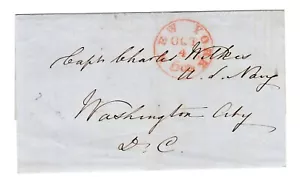 NEW YORK
OCT
4
Capt Charles Wilkes
U. S. Navy
Washington City
D. C.